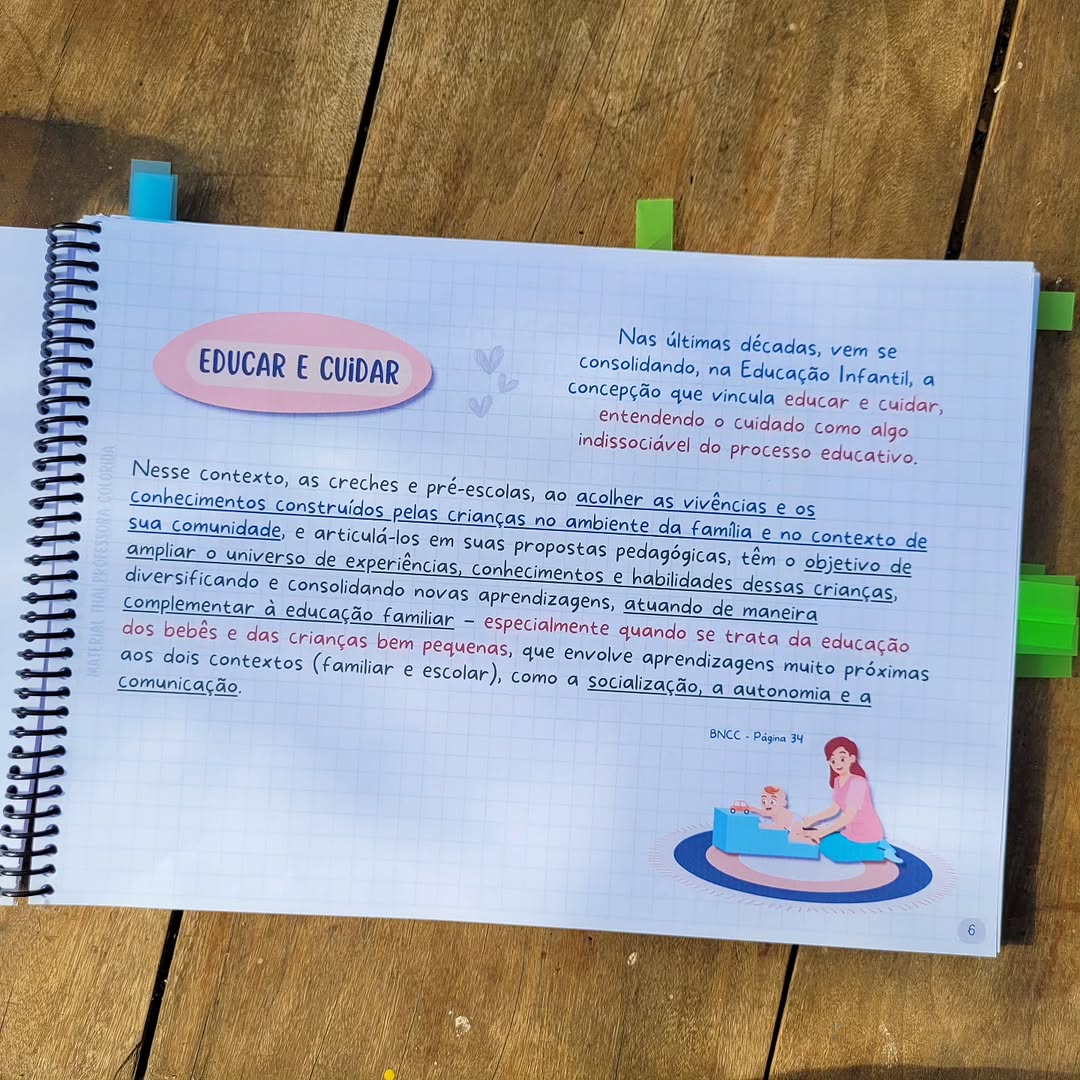 EDUCAR E CUIDAR
Nas últimas décadas, vem se
consolidando, na Educação Infantil, a
concepção que vincula educar e cuidar,
entendendo o cuidado como algo
indissociável do processo educativo.
Nesse contexto, as creches e pré-escolas, ao acolher as vivências e os
conhecimentos construídos pelas crianças no ambiente da família e no contexto de
sua comunidade, e articulá-los em suas propostas pedagógicas, têm o objetivo de
ampliar o universo de experiências, conhecimentos e habilidades dessas crianças,
diversificando e consolidando novas aprendizagens, atuando de maneira
complementar à educação familiar – especialmente quando se trata da educação
dos bebês e das crianças bem pequenas, que envolve aprendizagens muito próximas
aos dois contextos (familiar e escolar), como a socialização, a autonomia e a
comunicação.
BNCC - Página 34
MATERIAL THAI PROFESSORA COLORIDA
6